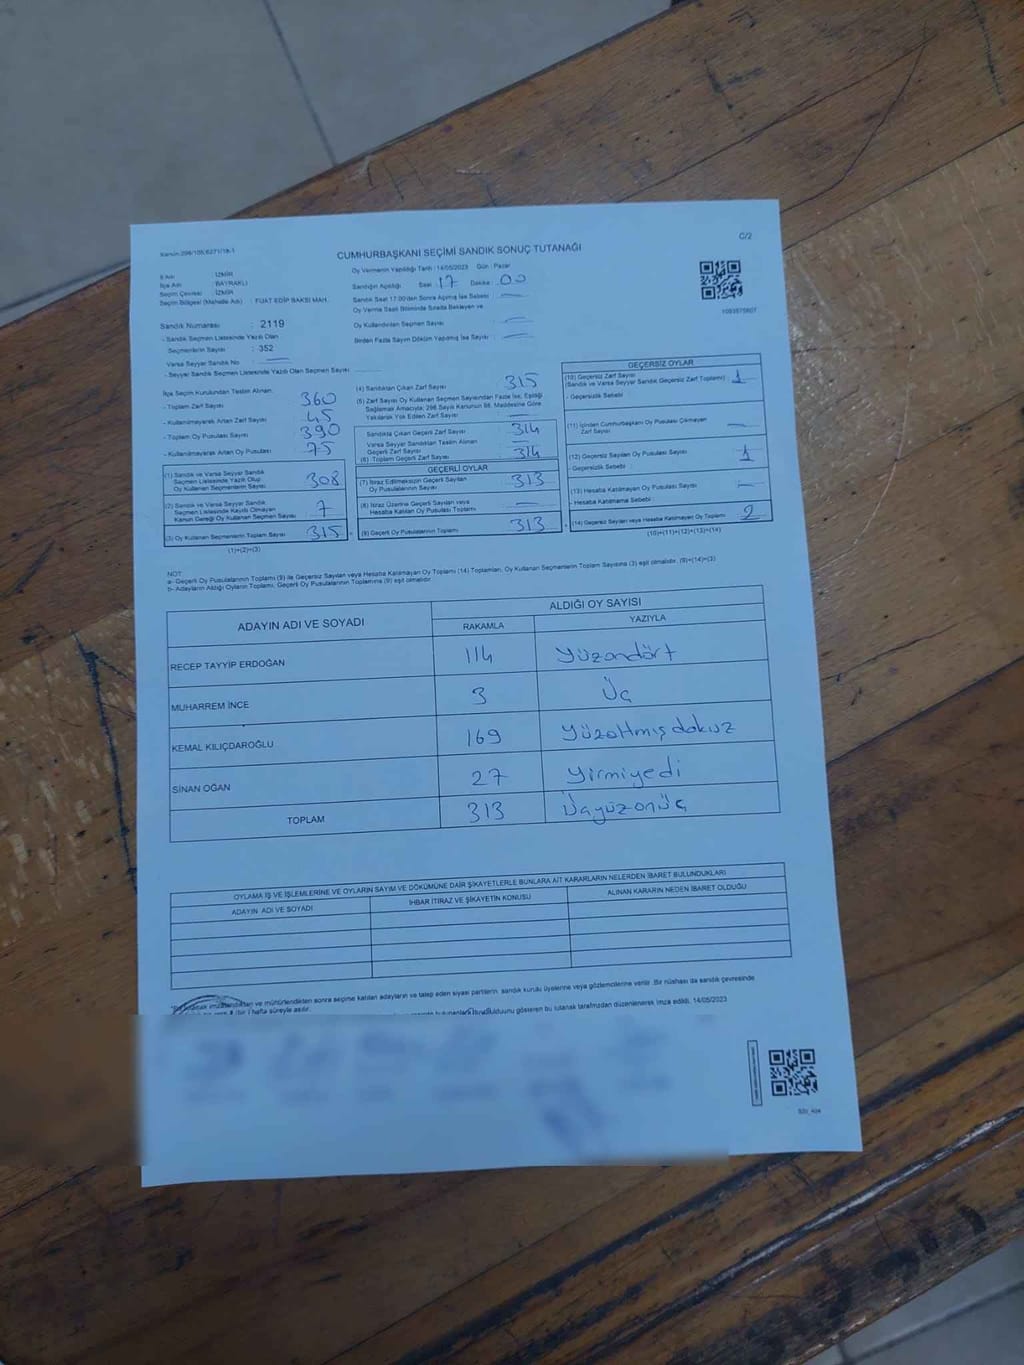 Kanun:298/105,6271/18-1
C/2
CUMHURBAŞKANI SEÇİMİ SANDIK SONUÇ TUTANAĞI
İl Adı : İZMİR
İlçe Adı : BAYRAKLI
Seçim Çevresi : İZMİR
Seçim Bölgesi (Mahalle Adı) : FUAT EDİP BAKSI MAH.
Oy Vermenin Yapıldığı Tarih : 14/05/2023 Gün : Pazar
Sandığın Açıldığı Saat : 17 Dakika : 00
Sandık Saat 17:00'den Sonra Açılmış İse Sebebi : —
Oy Verme Saati Bitiminde Sırada Bekleyen ve
Oy Kullandırılan Seçmen Sayısı : —
Birden Fazla Sayım Döküm Yapılmış İse Sayısı : —
1093575607
Sandık Numarası : 2119
- Sandık Seçmen Listesinde Yazılı Olan
Seçmenlerin Sayısı : 352
Varsa Seyyar Sandık No : —
- Seyyar Sandık Seçmen Listesinde Yazılı Olan Seçmen Sayısı :
İlçe Seçim Kurulundan Teslim Alınan:
- Toplam Zarf Sayısı : 360
- Kullanılmayarak Artan Zarf Sayısı : 45
- Toplam Oy Pusulası Sayısı : 390
- Kullanılmayarak Artan Oy Pusulası : 75
(1) Sandık ve Varsa Seyyar Sandık
Seçmen Listesinde Yazılı Olup
Oy Kullanan Seçmenlerin Sayısı : 308
(2) Sandık ve Varsa Seyyar Sandık
Seçmen Listesinde Kayıtlı Olmayan
Kanun Gereği Oy Kullanan Seçmen Sayısı : 7
(3) Oy Kullanan Seçmenlerin Toplam Sayısı : 315
(1)+(2)=(3)
(4) Sandıktan Çıkan Zarf Sayısı : 315
(5) Zarf Sayısı Oy Kullanan Seçmen Sayısından Fazla İse; Eşitliği
Sağlamak Amacıyla; 298 Sayılı Kanunun 98. Maddesine Göre
Yakılarak Yok Edilen Zarf Sayısı : —
Sandıkta Çıkan Geçerli Zarf Sayısı : 314
Varsa Seyyar Sandıktan Teslim Alınan
Geçerli Zarf Sayısı : —
(6) Toplam Geçerli Zarf Sayısı : 314
GEÇERLİ OYLAR
(7) İtiraz Edilmeksizin Geçerli Sayılan
Oy Pusulalarının Sayısı : 313
(8) İtiraz Üzerine Geçerli Sayılan veya
Hesaba Katılan Oy Pusulası Toplamı : —
(9) Geçerli Oy Pusulalarının Toplamı : 313
GEÇERSİZ OYLAR
(10) Geçersiz Zarf Sayısı
(Sandık ve Varsa Seyyar Sandık Geçersiz Zarf Toplamı) : 1
- Geçersizlik Sebebi :
(11) İçinden Cumhurbaşkanı Oy Pusulası Çıkmayan
Zarf Sayısı : —
(12) Geçersiz Sayılan Oy Pusulası Sayısı : 1
- Geçersizlik Sebebi :
(13) Hesaba Katılmayan Oy Pusulası Sayısı : —
- Hesaba Katılmama Sebebi :
(14) Geçersiz Sayılan veya Hesaba Katılmayan Oy Toplamı : 2
(10)+(11)+(12)+(13)=(14)
NOT :
a- Geçerli Oy Pusulalarının Toplamı (9) ile Geçersiz Sayılan veya Hesaba Katılmayan Oy Toplamı (14) Toplamları, Oy Kullanan Seçmenlerin Toplam Sayısına (3) eşit olmalıdır. (9)+(14)=(3)
b- Adayların Aldığı Oyların Toplamı, Geçerli Oy Pusulalarının Toplamına (9) eşit olmalıdır.
ADAYIN ADI VE SOYADI
ALDIĞI OY SAYISI
RAKAMLA YAZIYLA
RECEP TAYYİP ERDOĞAN 114 Yüzondört
MUHARREM İNCE 3 Üç
KEMAL KILIÇDAROĞLU 169 Yüzaltmışdokuz
SİNAN OĞAN 27 Yirmiyedi
TOPLAM 313 Üçyüzonüç
OYLAMA İŞ VE İŞLEMLERİNE VE OYLARIN SAYIM VE DÖKÜMÜNE DAİR ŞİKAYETLERLE BUNLARA AİT KARARLARIN NELERDEN İBARET BULUNDUKLARI
ADAYIN ADI VE SOYADI
İHBAR İTİRAZ VE ŞİKAYETİN KONUSU
ALINAN KARARIN NEDEN İBARET OLDUĞU
imzalandıktan ve mühürlendikten sonra seçime katılan adayların ve talep eden siyasi partilerin, sandık kurulu üyelerine veya gözlemcilerine verilir. Bir nüshası da sandık çevresinde
(bir) hafta süreyle asılır.
gösteren bu tutanak tarafımızdan düzenlenerek imza edildi. 14/05/2023